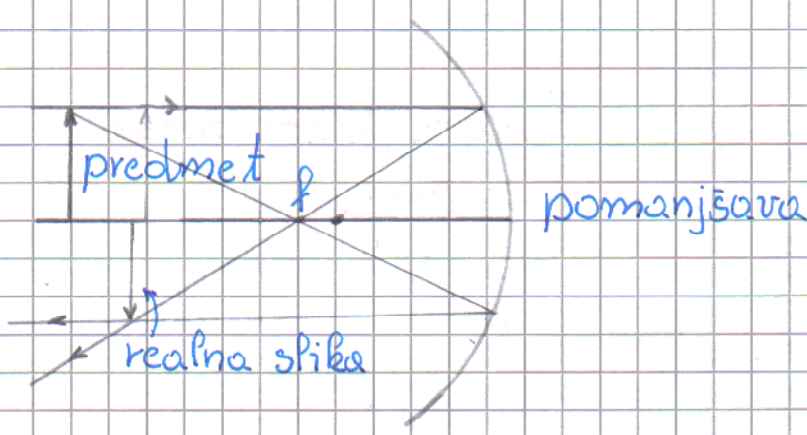 predmet
f
pomanjšava
realna slika